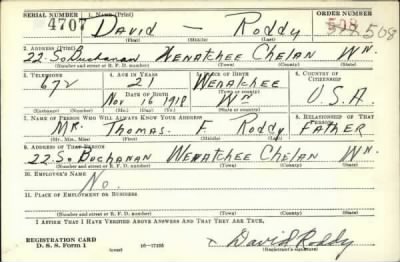 SERIAL NUMBER 1. NAME (Print) ORDER NUMBER
4707 David — Roddy 508
(First) (Middle) (Last)
2. ADDRESS (Print)
22. So Buchanan Wenatchee Chelan Wn.
(Number and street or R. F. D. number) (Town) (County) (State)
3. TELEPHONE 4. AGE IN YEARS 5. PLACE OF BIRTH 6. COUNTRY OF CITIZENSHIP
672 21 Wenatchee
(Town or county)
DATE OF BIRTH
Nov 16 1918 Wn U.S.A.
(Exchange) (Number) (Mo.) (Day) (Yr.) (State or country)
7. NAME OF PERSON WHO WILL ALWAYS KNOW YOUR ADDRESS 8. RELATIONSHIP OF THAT PERSON
Mr. Thomas F Roddy Father
(Mr., Mrs., Miss) (First) (Middle) (Last)
9. ADDRESS OF THAT PERSON
22. So Buchanan Wenatchee Chelan Wn.
(Number and street or R. F. D. number) (Town) (County) (State)
10. EMPLOYER'S NAME
No.
11. PLACE OF EMPLOYMENT OR BUSINESS
(Number and street or R. F. D. number) (Town) (County) (State)
I AFFIRM THAT I HAVE VERIFIED ABOVE ANSWERS AND THAT THEY ARE TRUE.
REGISTRATION CARD
D. S. S. Form 1 (over) 16—17105 x David Roddy
(Registrant's signature)